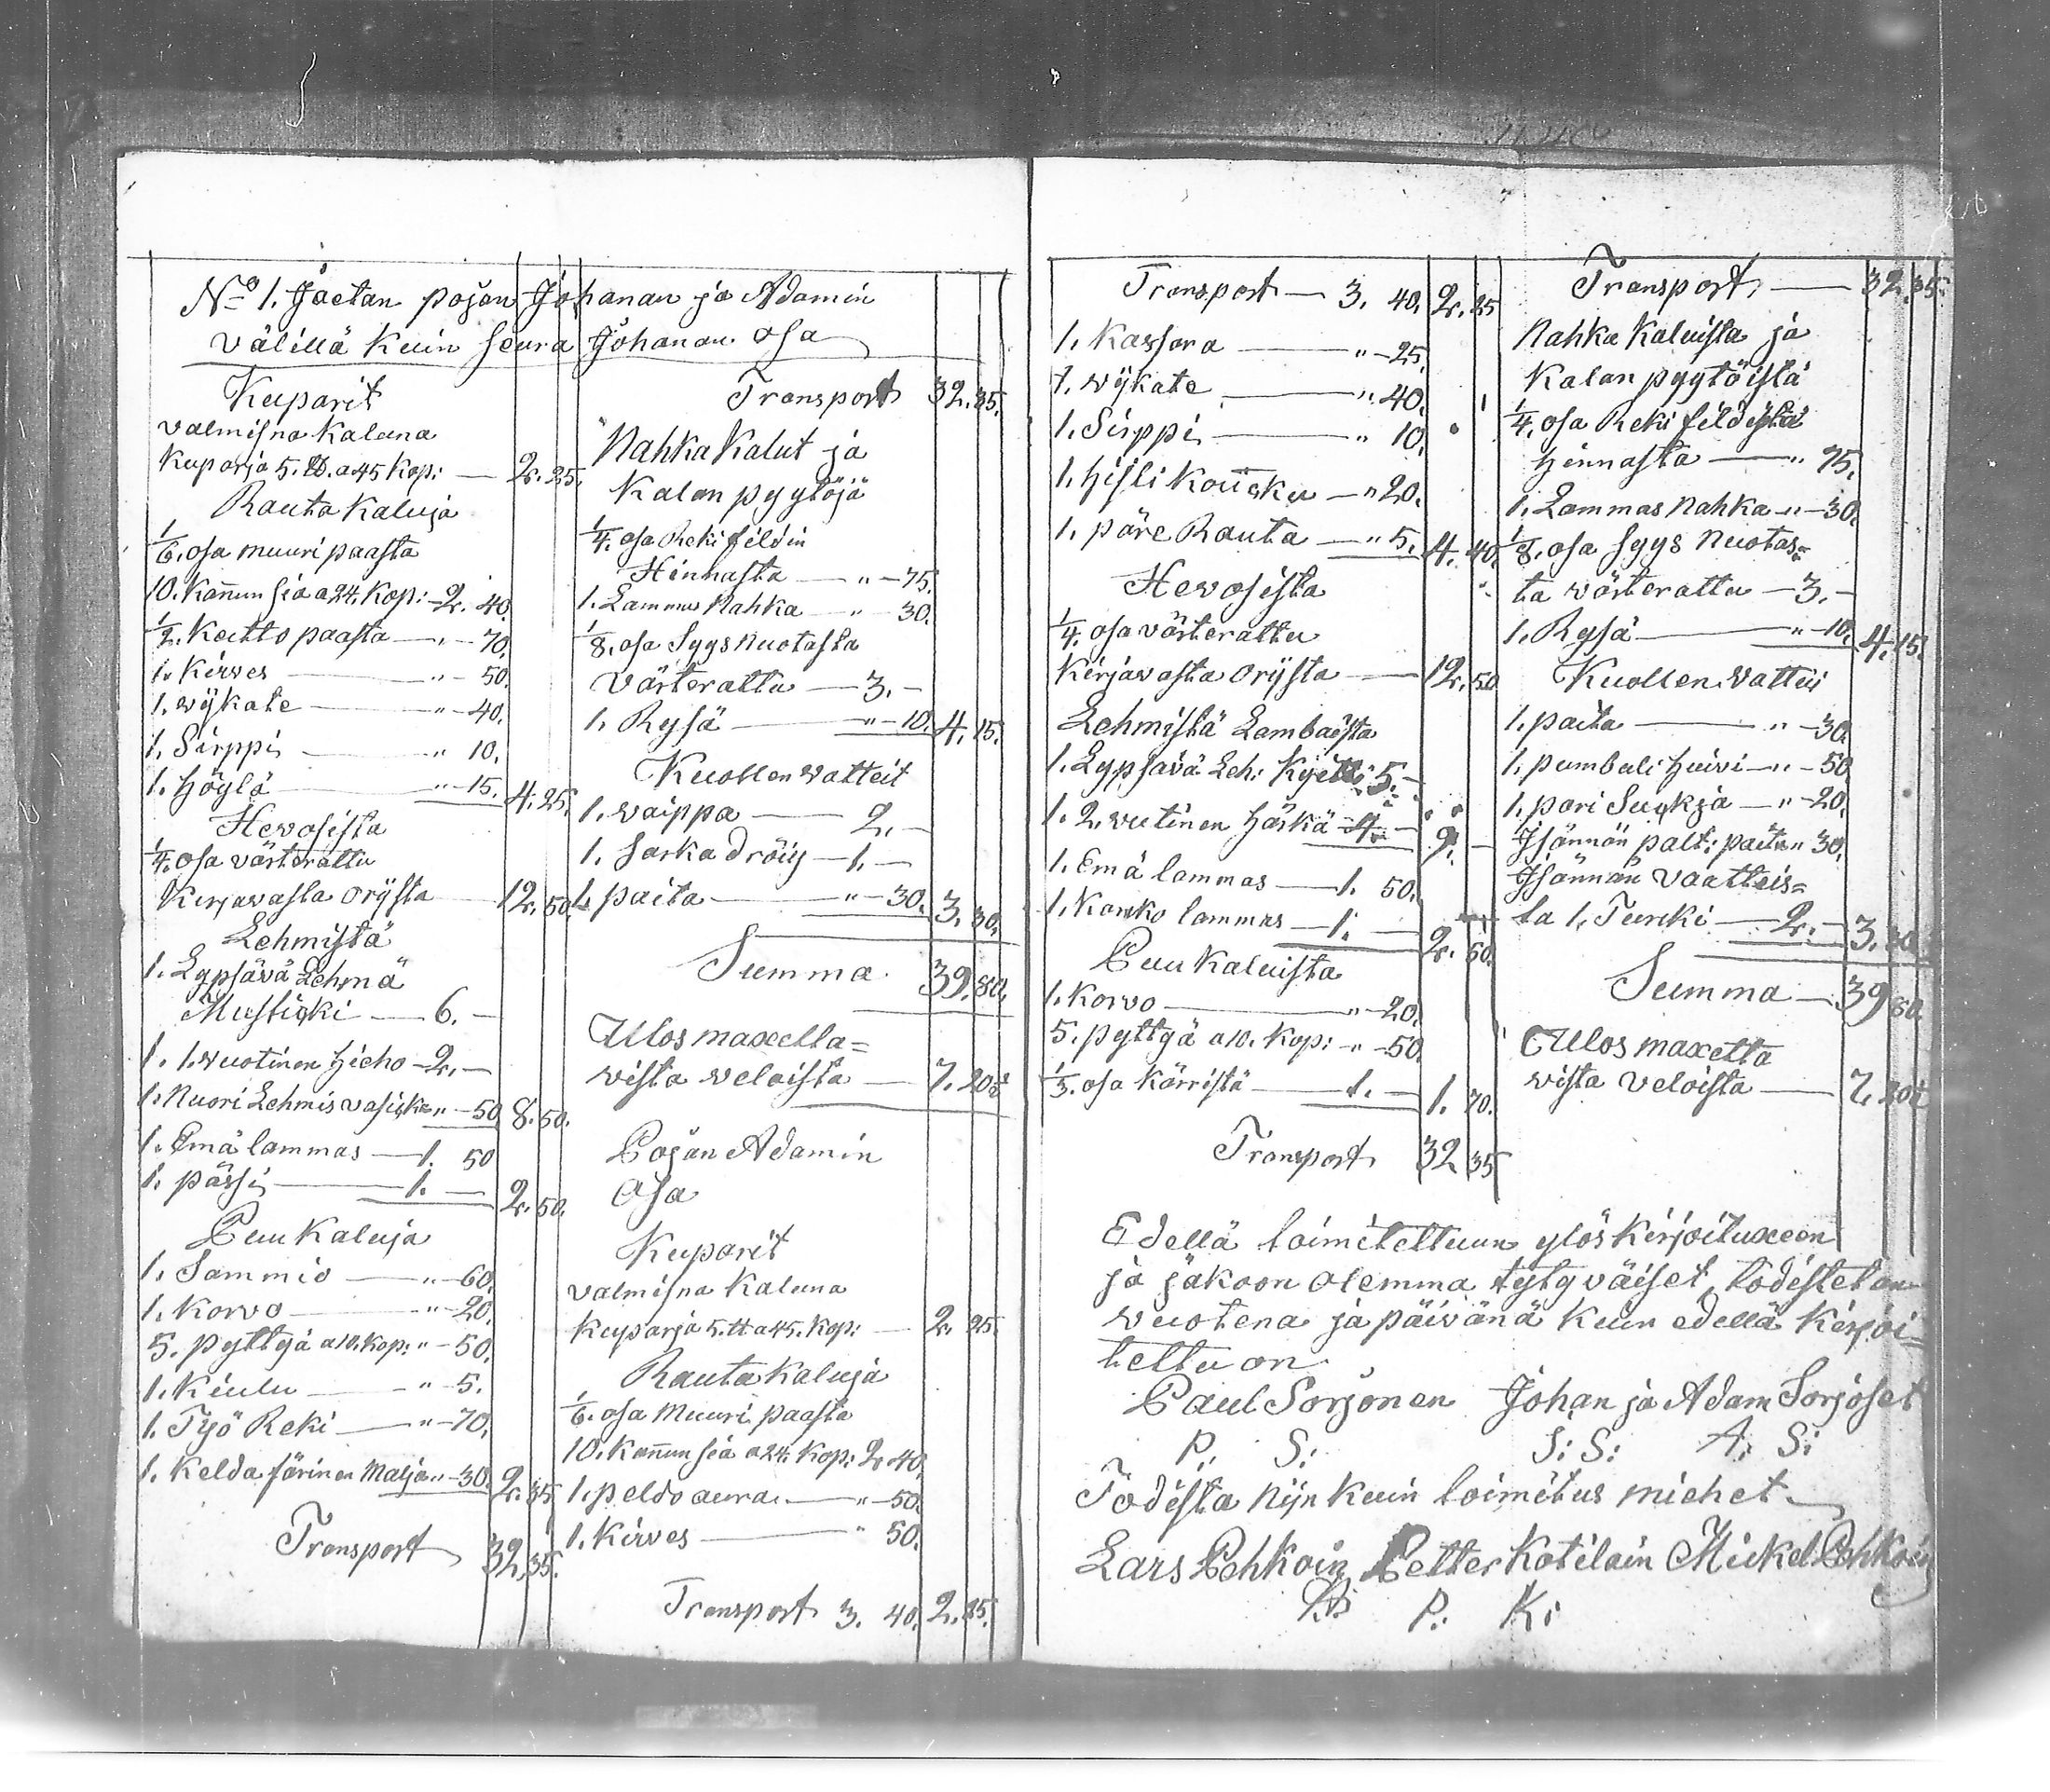 No 1. Jaetan pojan Johanan ja Adamin
välillä kuin seura Johanan osa
Kuparit
valmisna kaluna
kuparja 5. ℔. a 45 kop: — 2. 25.
Rauta kaluja
1/6. osa muuri paasta
10. kañun sia a 24. kop: - 2. 40.
1/2. katto paasta — " - 70.
1. kirves — " - 50.
1. wÿkate — " - 40.
1. Sirppi — " 10.
1. höylä — " - 15. 4. 25.
Hevosista
1/4. osa värterattu
kirjavasta orÿsta 12. 50.
Lehmistä
1. Lypsävä Lehmä
Mustikki — 6. -
1. 1. vuotinen hieho - 2. -
1. Nuori Lehmis vasikka " - 50 8. 50.
1. Emä lammas — 1. 50
1. pässi — 1. — 2. 50.
Puu kaluja
1. Sammio — " - 60.
1. korvo — " - 20.
5. pyttyä a 10. kop: " - 50.
1. kiulu — " - 5.
1. Työ Reki — " - 70.
1. kelda särinen malja " - 30. 2. 35
Transport 32. 35.
Transport 32. 35.
Nahka kalut ja
kalan pyytöjä
1/4. osa Reki fildin
Hinnasta — " - 75.
1. Lammas Nahka — " - 30.
1/8. osa Syys nuotasta
värterattu — 3. -
1. Rysä — " - 10. 4. 15.
Kuollen vatteit
1. vaippa — 2. -
1. Sarka dröiy — 1. —
1. paita — " - 30. 3. 30.
Summa 39. 80.
Ulos maxetta=
vista veloista — 7. 20 1/2
Pojan Adamin
osa
Kuparit
valmisna kaluna
kuparja 5. ℔ a 45. kop: — 2. 25.
Rauta kaluja
1/6. osa muuri paasta
10. kañun sia a 24. kop: 2. 40.
1. peldo aura — " - 50.
1. kirves — " 50.
Transport 3. 40. 2. 25.
Transport — 3. 40. 2. 25
1. kassara — " - 25.
1. wÿkate — " 40.
1. Sirppi — " 10.
1. hisli — " 20.
1. päre Rauta — " 5. 4. 40.
Hevosista
1/4. osa värterattu
kirjavasta orÿsta — 12. 50
Lehmistä Lambaista
1. Lypsävä Leh: 5. -
1. 2. vutinen härkä - 4. - 9. -
1. Emä lammas — 1. 50.
1. karko lammas — 1. — 2. 50.
Puu kaluista
1. korvo — " - 20.
5. pyttyä a 10. kop: " - 50
1/3. osa kärristä — 1. - 1. 70.
Transport 32 35
Transport — 32. 35.
Nahka kaluista ja
kalan pyytöistä
1/4. osa Reki fildistä
hinnasta — " 75.
1. Lammas Nahka " - 30.
1/8. osa syys nuotas=
ta värterattu — 3. -
1. Rysä — " - 10. 4. 15.
Kuollen vattei
1. paita — " - 30.
1. pumbuli huivi — " - 50
1. pari Sukkja — " - 20.
Isännän palt: paita " 30.
Isännän vaatteis=
ta 1. Turcki — 2. - 3. 30
Summa — 39 80
Ulos maxetta
vista veloista — 7. 20 1/2
Edellä toimitettuun ylöskirjoituxeen
ja jakoon olemma tytyväiset, todistetan
vuotena ja päivänä kuin edellä kirjoi=
tettu on.
Paul Sorjonen Johan ja Adam Sorjoset
P. S: S: S: A: S:
Todista nijn kuin toimitus miehet
Lars Pehkoin Petter Kotilain Mickel Pehkoin
P: K: